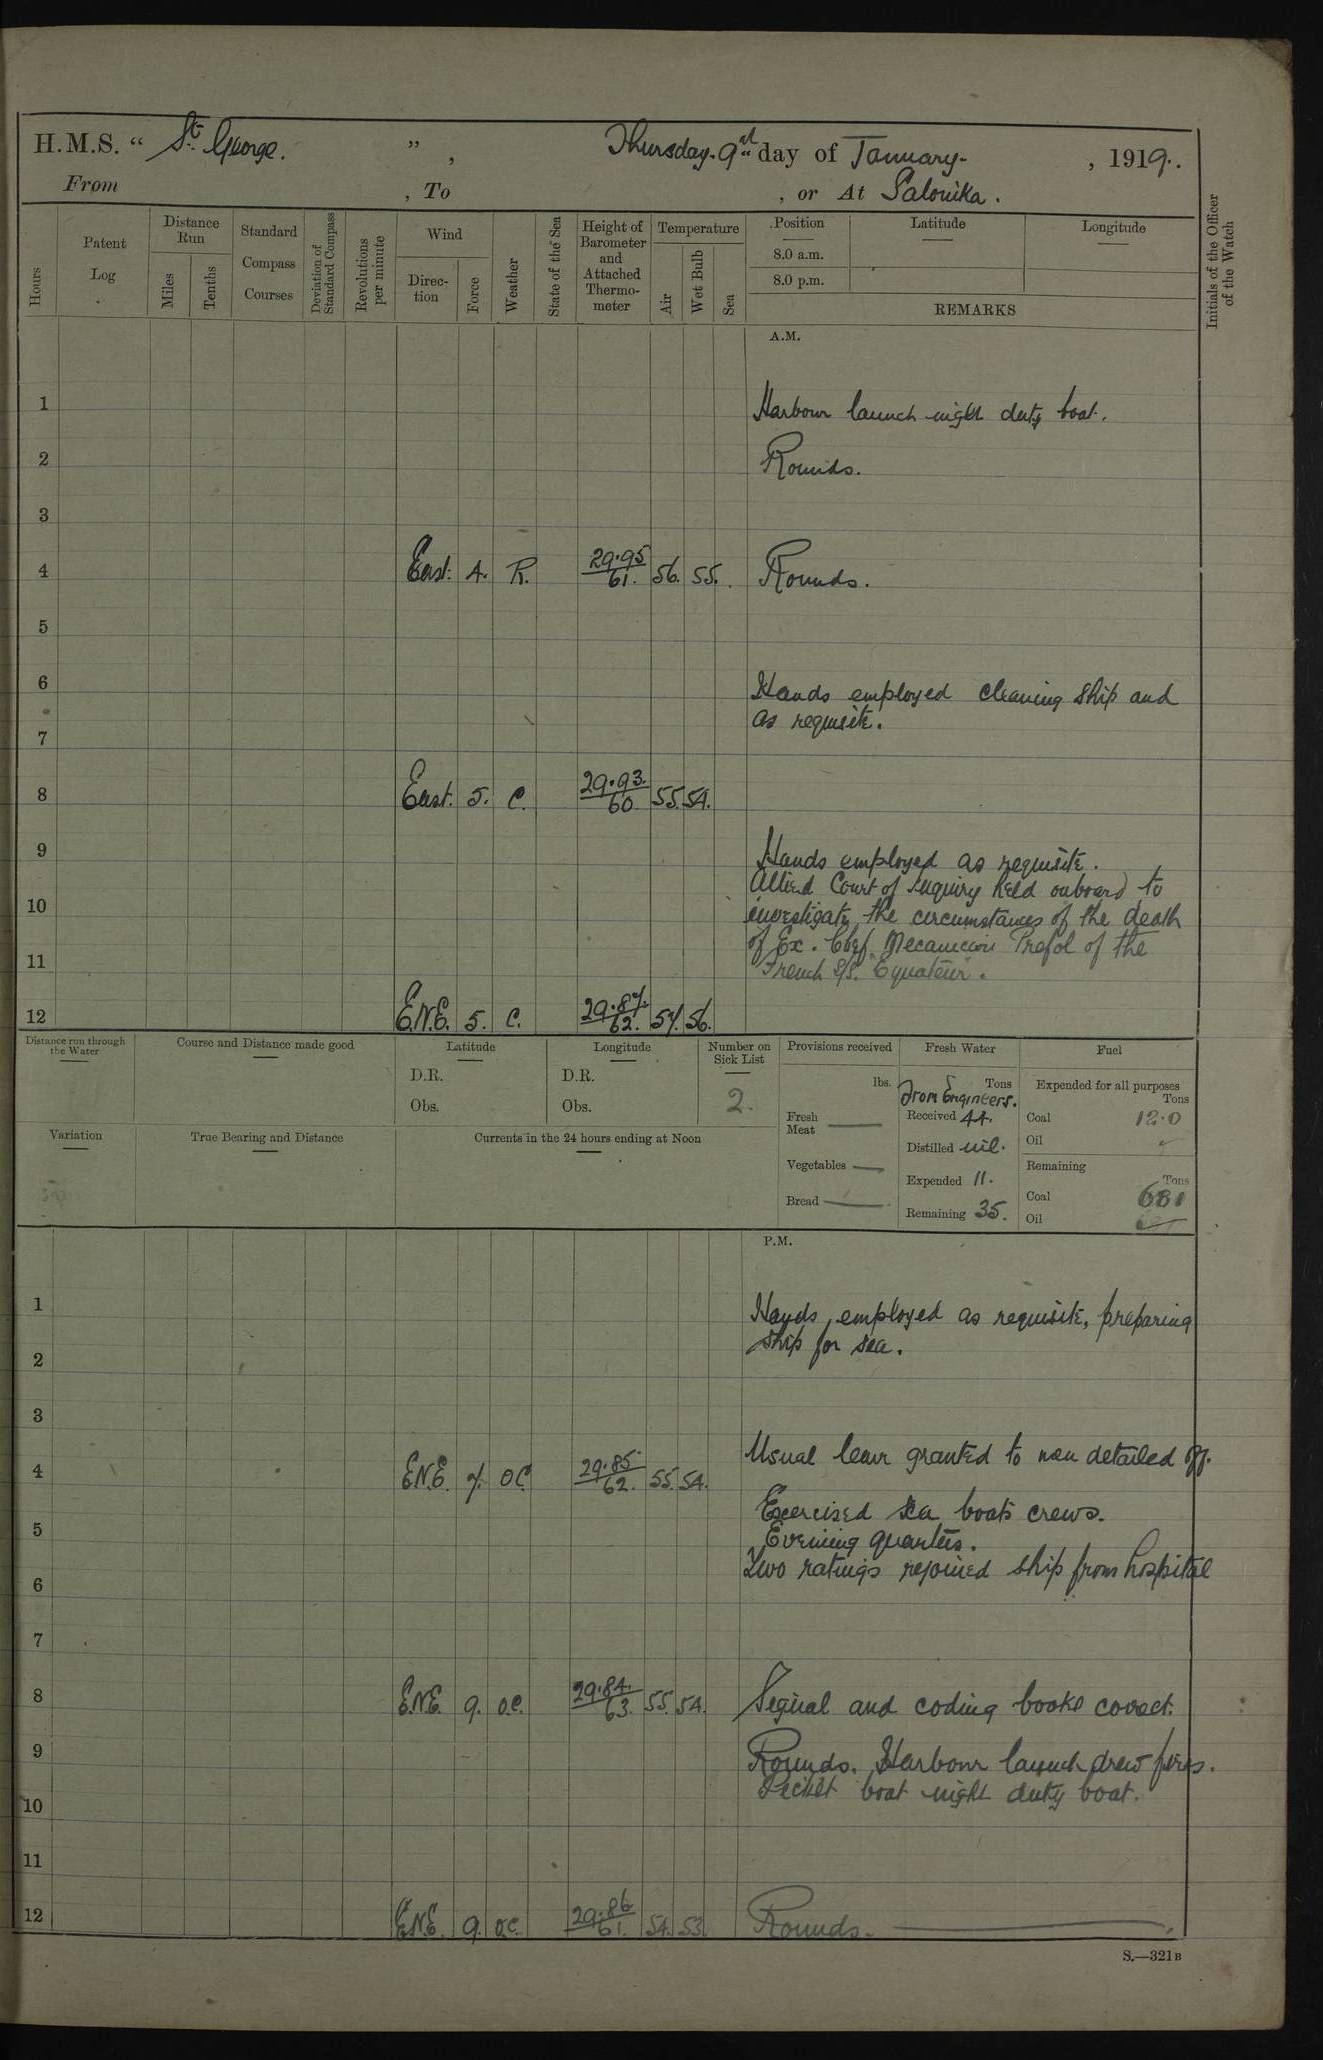 H.M.S. “ St George. ” , Thursday. 9th day of January. , 1919.
From , To , or At Salonika.
Hours
Patent Log
Distance Run
Miles
Tenths
Standard Compass Courses
Deviation of Standard Compass
Revolutions per minute
Wind
Direction
Force
Weather
State of the Sea
Height of Barometer and Attached Thermometer
Temperature
Air
Wet Bulb
Sea
Position
8.0 a.m.
8.0 p.m.
Latitude
Longitude
REMARKS
Initials of the Officer of the Watch
A.M.
1 Harbour launch night duty boat.
2 Rounds.
3
4 East. 4. R. 29.95 61. 56. 55. Rounds.
5
6 Hands employed cleaning ship and
7 as requisite.
8 East. 5. C. 29.93. 60. 55. 54.
9 Hands employed as requisite.
Allied Court of inquiry held onboard to
10 investigate the circumstances of the death
of Ex. Chef Mecanicien Prefol of the
11 French S/S. "Equateur".
12 E.N.E. 5. C. 29.87. 62. 57. 56.
Distance run through the Water
Course and Distance made good
Latitude
D.R.
Obs.
Longitude
D.R.
Obs.
Number on Sick List
2.
Provisions received
lbs.
Fresh Meat
Vegetables
Bread
Fresh Water
Tons
From Engineers.
Received 44.
Distilled nil.
Expended 11.
Remaining 35.
Fuel
Expended for all purposes
Tons
Coal 12.0
Oil
Remaining
Tons
Coal 681
Oil
Variation
True Bearing and Distance
Currents in the 24 hours ending at Noon
P.M.
1 Hands employed as requisite, preparing
2 ship for sea.
3
4 E.N.E. 7. OC. 29.85 62. 55. 54. Usual leave granted to men detailed off.
Exercised sea boats crews.
5 Evening quarters.
6 Two ratings rejoined ship from hospital
7
8 E.N.E. 9. O.C. 29.84. 63. 55. 54. Signal and coding books correct.
9 Rounds. Harbour launch drew fires.
10 Picket boat night duty boat.
11
12 E.N.E. 9. O.C. 29.86 61. 54. 53. Rounds.
S.—321B